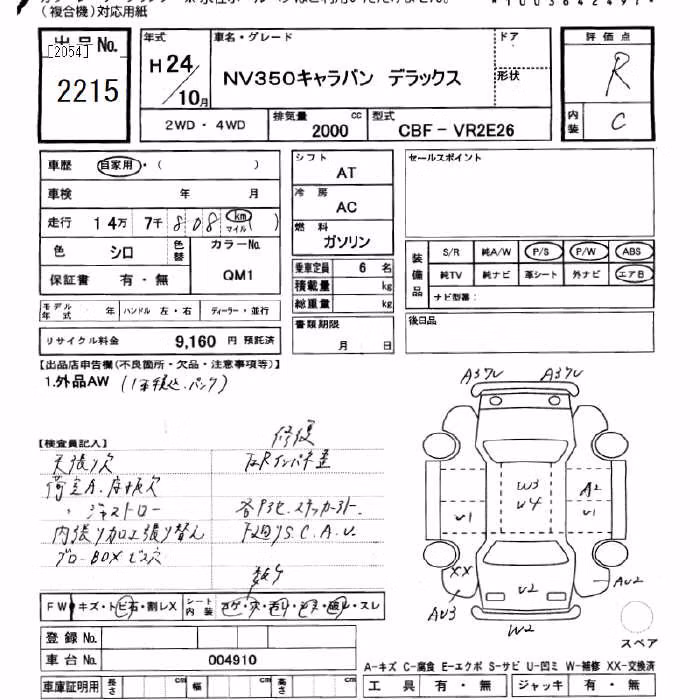 (複合機)対応用紙
出品No.
[2054]
2215
年式
H24/10月
車名・グレード
NV350キャラバン デラックス
ドア
形状
評価点
R
内装 C
2WD・4WD
排気量 2000 cc
型式 CBF-VR2E26
車歴 自家用・( )
車検 年 月
走行 14万 7千 808 km マイル ( )
色 シロ 色替
カラーNo. QM1
保証書 有・無
モデル年式 年 ハンドル 左・右 ディーラー・並行
リサイクル料金 9,160 円 預託済
シフト AT
冷房 AC
燃料 ガソリン
乗車定員 6 名
積載量 kg
総重量 kg
書類期限 月 日
セールスポイント
装備品
S/R 純A/W P/S P/W ABS
純TV 純ナビ 革シート 外ナビ エアB
ナビ型番:
後日品
【出品店申告欄(不良箇所・欠品・注意事項等)】
1.外品AW
【検査員記入】
修復
天張り穴
内張り加工張り替ん
FW キズ・トビ石・割レX
シート内装 コゲ・穴・汚レ・シミ・破レ・スレ
登録No.
車台No. 004910
車庫証明用 長さ cm 幅 cm 高さ cm
A3 A3
W3
U4
U1
A2
U1
XX
AU3
U2
AU2
W2
スペア
A-キズ C-腐食 E-エクボ S-サビ U-凹ミ W-補修 XX-交換済
工具 有・無 ジャッキ 有・無